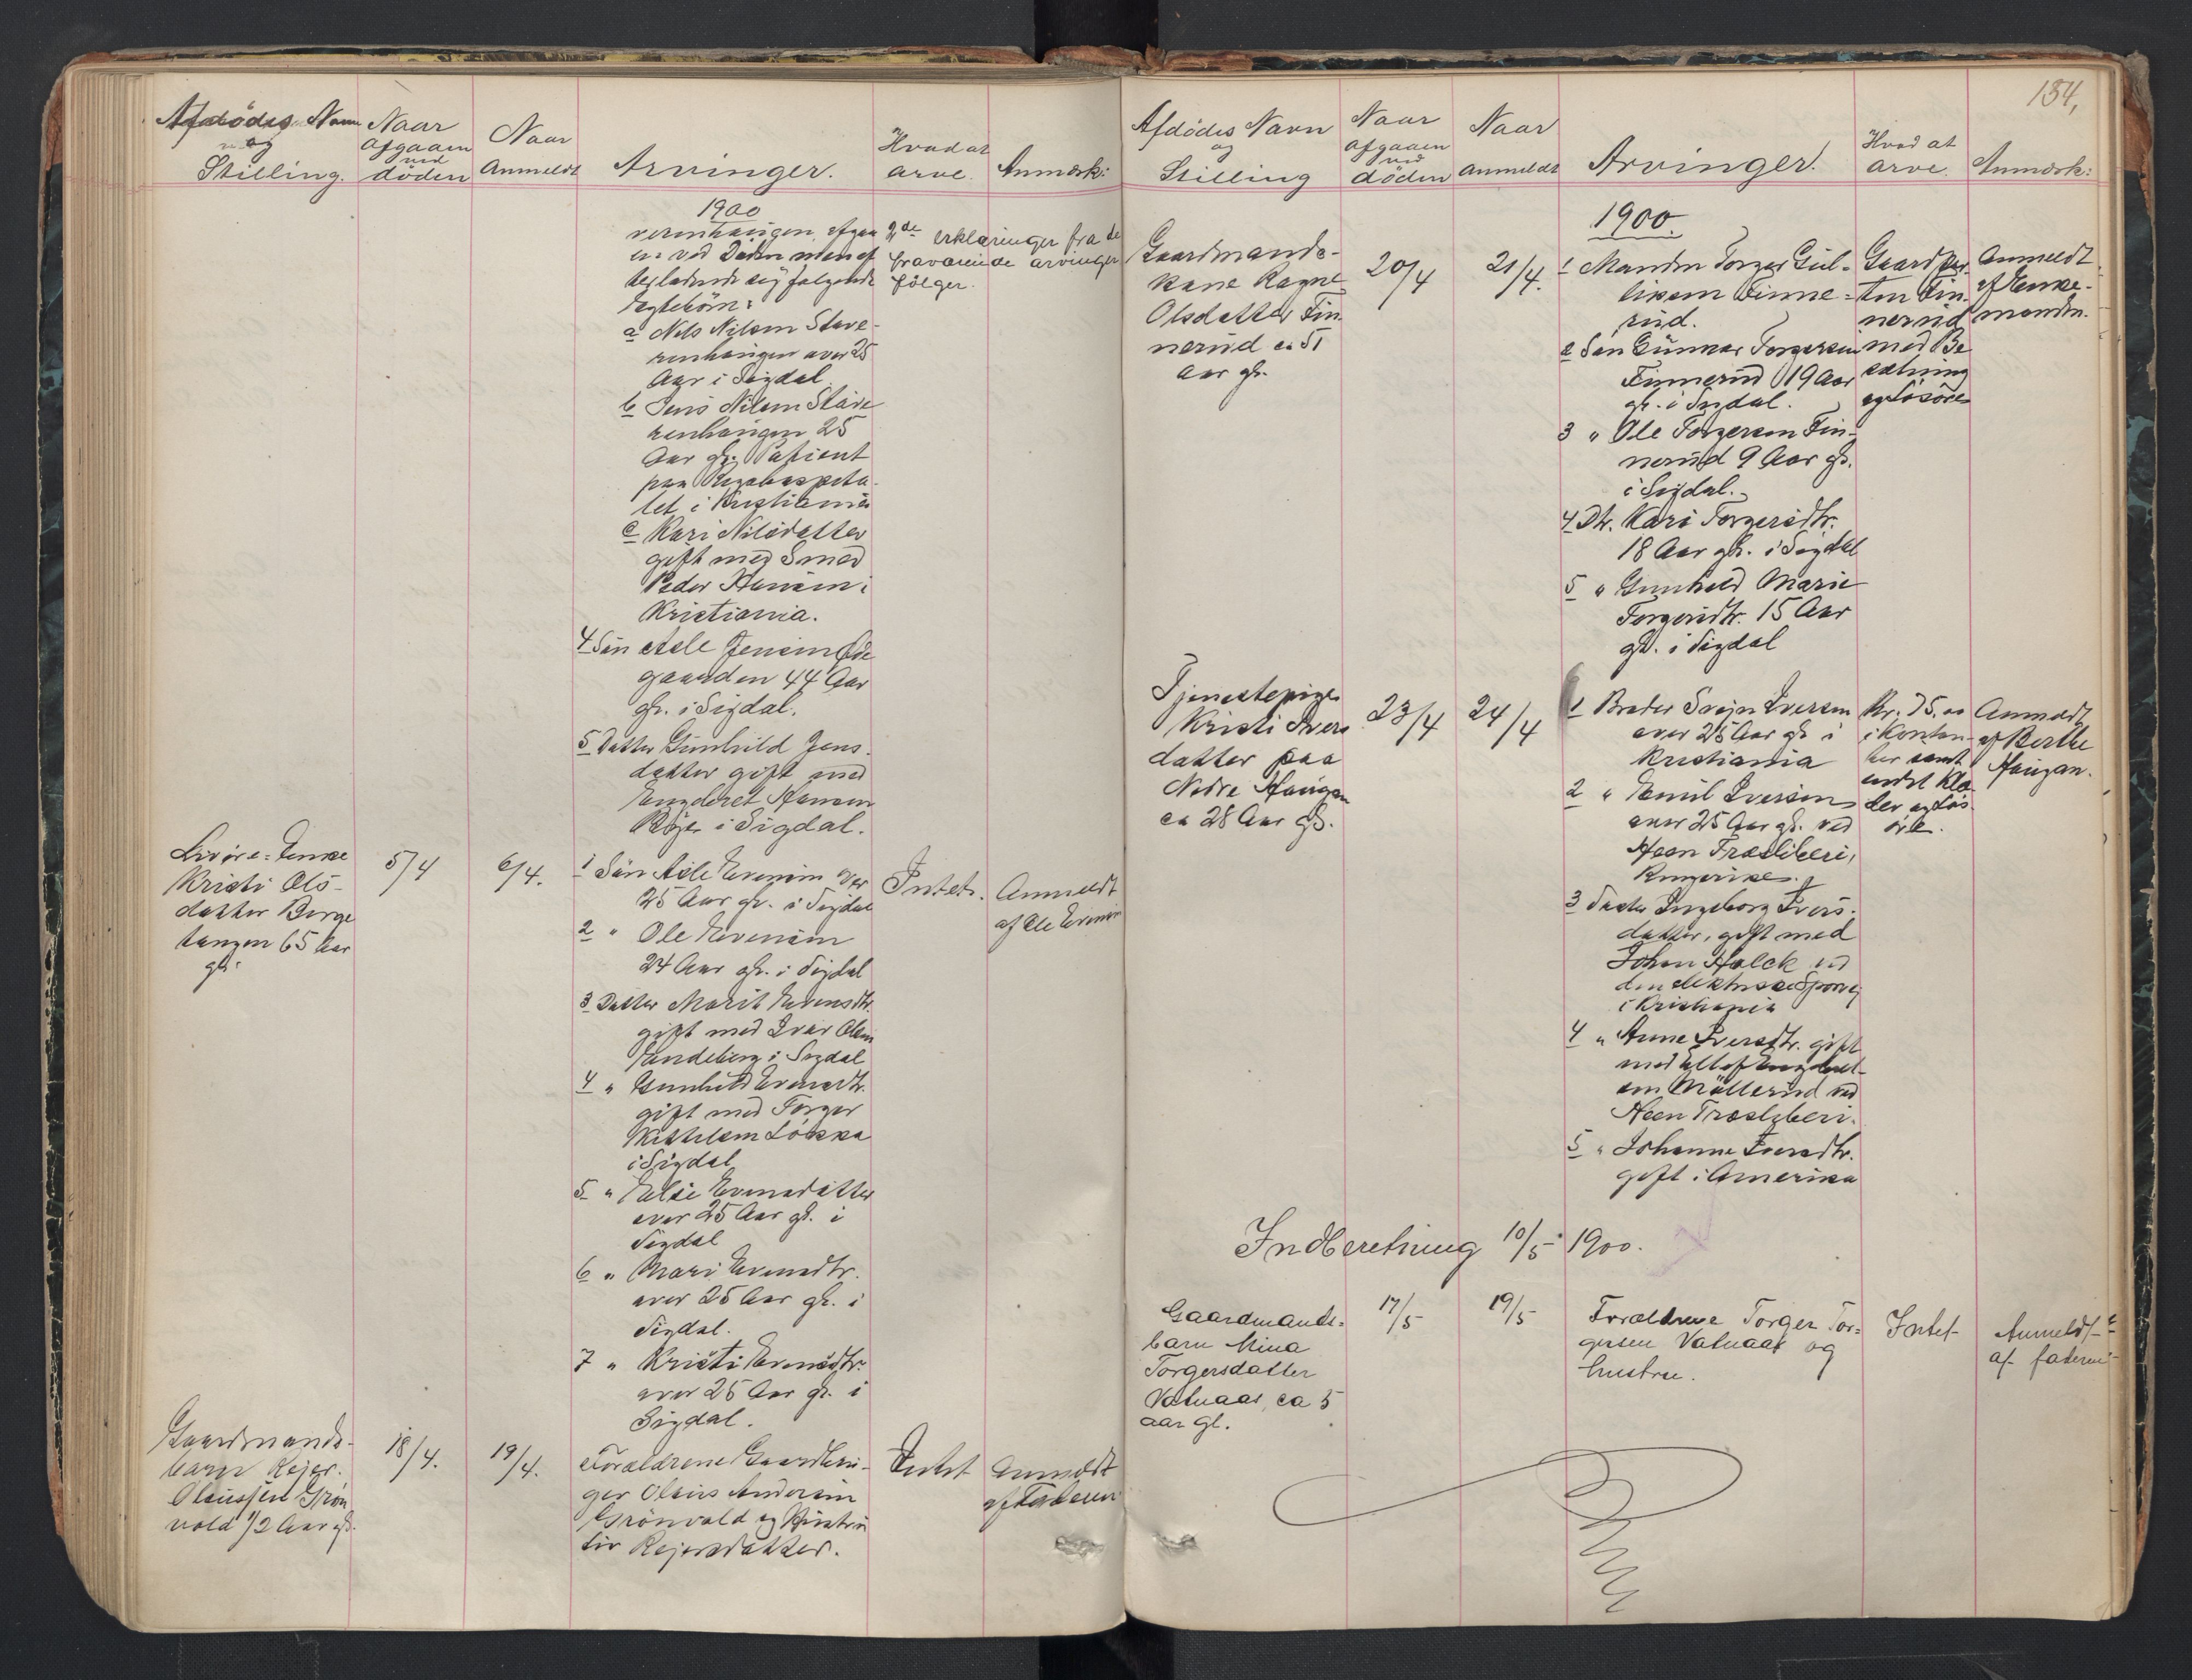 Afdödes Navn
og
Stilling.
Naar
afgaaen
ved
döden
Naar
Anmeldt
Arvinger.
Hvad at
arve.
Anmærk:
1900
verenhaugen afgaa
en ved Döden men ef
terladende sig følgende
Ægtebörn:
a Nils Nilsen Stave-
renhaugen over 25
Aar i Sigdal
b Jens Nilsen Stave
renhaugen 25
Aar gl. Patient
paa Rigshospita-
let i Kristiania
c Kari Nilsdatter
gift med Smed
Peder Hansen i
Kristiania.
4 Sön Asle Jensen Øde
gaarden 44 Aar
gl. i Sigdal.
5 Datter Gunhild Jens-
datter gift med
Engebret Hansen
i Sigdal.
2de erklæringer fra de
fraværende arvinger
følger.
Livöre: Enke
Kristi Ols-
datter Berge
tangen 65 Aar
gl.
5/4
6/4.
1 Sön Asle Evensen over
25 Aar gl. i Sigdal
2 " Ole Evensen
24 Aar gl. i Sigdal
3 Datter Marit Evensdtr.
gift med Ivar Olsen
i Sigdal
4 " Gunhild Evensdtr.
gift med Torger
Kittelsen Løkka
i Sigdal
5 " Eli Evensdatter
over 25 Aar gl. i
Sigdal
6 " Mari Evensdtr.
over 25 Aar gl. i
Sigdal.
7 " Kristi Evensdtr.
over 25 Aar gl. i
Sigdal.
Intet.
Anmeldt
af Ole Evensen
Gaardmands-
barn Rejer
Olaussen Grön
vold 1/2 Aar gl.
18/4.
19/4.
Forældrene Gaardbru-
ger Olaus Andersen
Grönvold og Hustru
Liv Rejersdatter.
Intet
Anmeldt
af Faderen
134,
Afdödes Navn
og
Stilling
Naar
afgaaen
ved
döden
Naar
Anmeldt
Arvinger.
Hvad at
arve.
Anmærk:
1900.
Gaardmands-
kone Ragne
Olsdatter Fin
nerud ca 51
Aar gl.
20/4
21/4.
1 Manden Torger Gul-
liksen Finne-
rud.
2 Sön Gunnar Torgersen
Finnerud 19 Aar
gl. i Sigdal.
3 " Ole Torgersen Fin-
nerud 9 Aar gl.
i Sigdal.
4 Dtr. Kari Torgersdtr.
18 Aar gl. i Sigdal
5 " Gunhild Marie
Torgersdtr. 15 Aar
gl. i Sigdal
Gaardpar-
ten Fin-
nerud
med Be
sætning
og Løsöre
Anmeldt
af Enke-
manden.
Tjenestepige
Kristi Ivers
datter paa
Nedre Haugan
ca 28 Aar gl.
23/4
24/4
1 Broder Svejn Iversen
over 25 Aar gl. i
Kristiania
2 " Emil Iversen
over 25 Aar gl. ved
Heen Træsliberi,
Ringerike.
3 Søster Ingeborg Ivers-
datter, gift med
Johan Holck ved
den elektriske Sporvej
i Kristiania
4 " Anne Iversdtr. gift
med Ellef Engebret-
sen Möllerud ved
Heen Træsliberi.
5 " Johanne Iversdtr.
gift i Amerika
Kr. 75.00
i Kontan-
ter samt
endel Klæ
der og Løs-
öre.
Anmeldt
af Berthe
Haugan.
Indberetning 10/5 1900.
Gaardmands-
barn Mina
Torgersdatter
Vatnaas, ca 5
aar gl.
17/5
19/5
Forældrene Torger Tor-
gersen Vatnaas og
hustru.
Intet
Anmeldt
af faderen